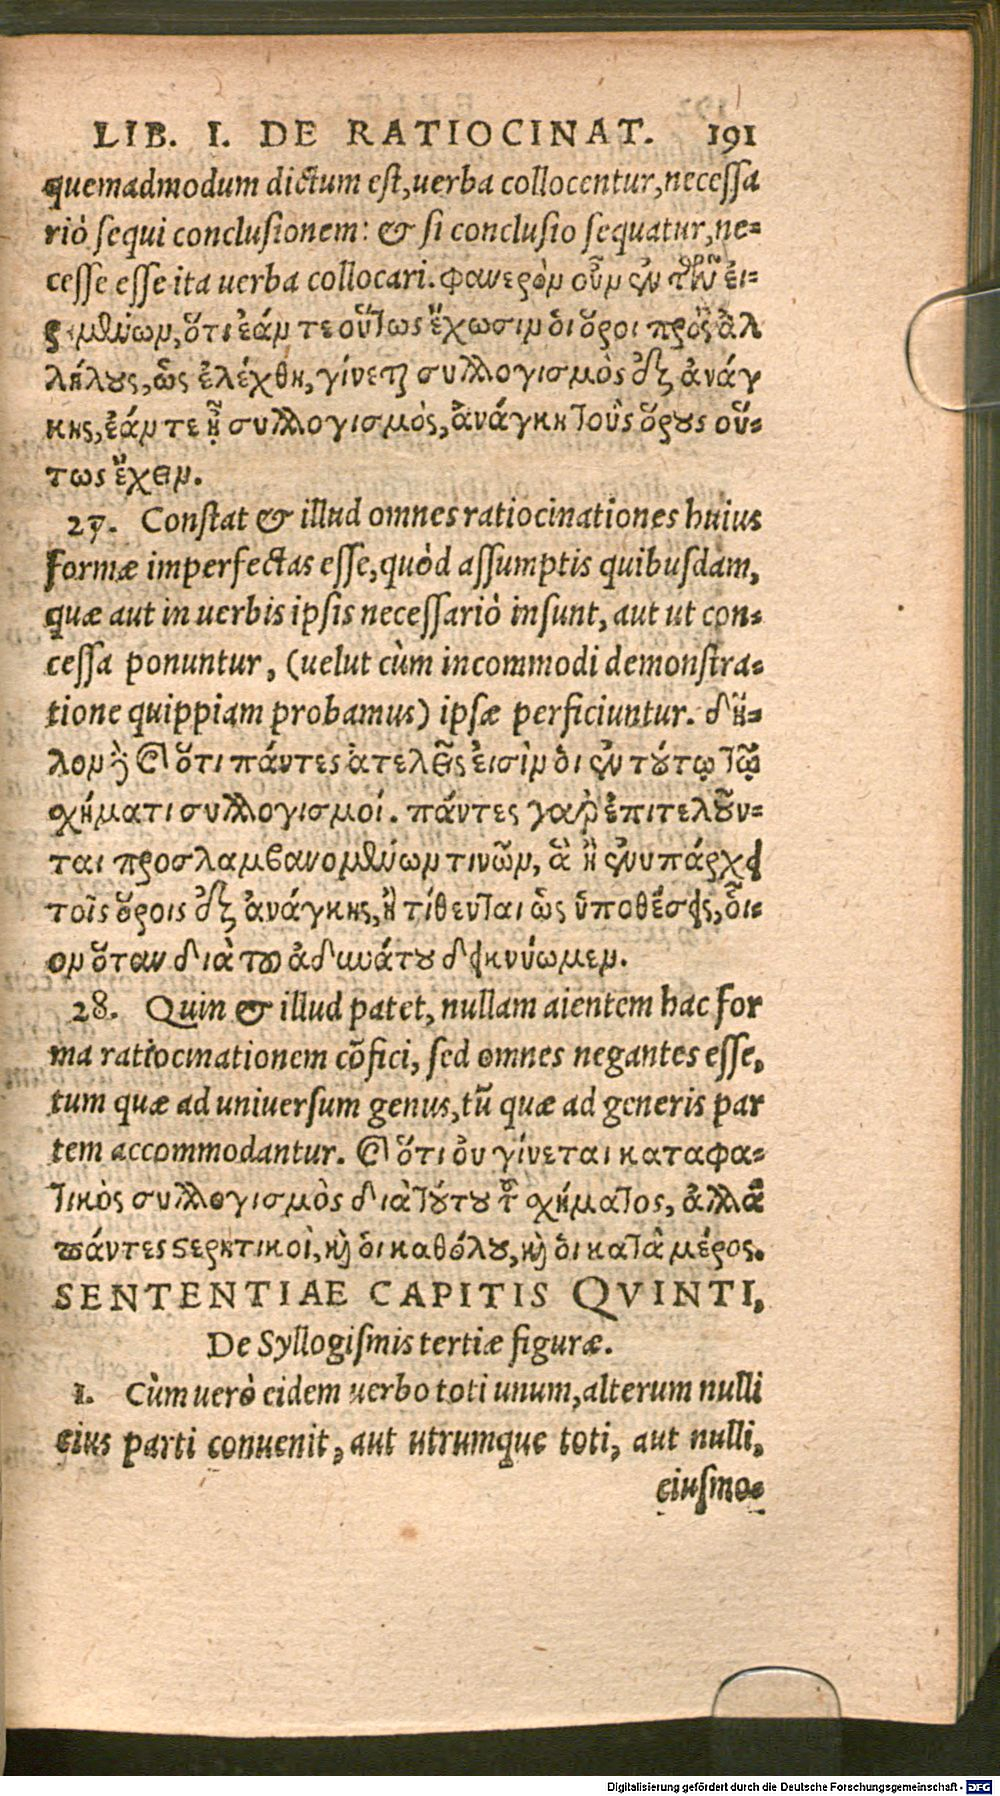 LIB. I. DE RATIOCINAT. 191
quemadmodum dictum est, uerba collocentur, necessa
riò sequi conclusionem: & si conclusio sequatur, ne-
cesse esse ita uerba collocari. φανερὸν οὖν ἐν τῶν εἰ-
ρημένων, ὅτι ἐάν τε οὕτως ἔχωσιν ὁι ὅροι πρὸς ἀλ
λήλους, ὡς ἐλέχθη, γίνεται συλλογισμὸς ἐξ ἀνάγ
κης, ἐάν τε ᾖ συλλογισμὸς, ἀνάγκη τοὺς ὅρους οὕ-
τως ἔχειν.
27. Constat & illud omnes ratiocinationes huius
formæ imperfectas esse, quòd assumptis quibusdam,
quæ aut in uerbis ipsis necessariò insunt, aut ut con-
cessa ponuntur, (uelut cùm incommodi demonstra-
tione quippiam probamus) ipsæ perficiuntur. δῆ-
λον δὲ καὶ ὅτι πάντες ἀτελεῖς εἰσὶν ὁι ἐν τούτῳ τῷ
σχήματι συλλογισμοί. πάντες γὰρ ἐπιτελοῦν-
ται προσλαμβανομένων τινῶν, ἃ ἢ ἐνυπάρχει
τοῖς ὅροις ἐξ ἀνάγκης, ἢ τίθενται ὡς ὑποθέσεις, οἷ-
ον ὅταν διὰ τοῦ ἀδυνάτου δεικνύωμεν.
28. Quin & illud patet, nullam aientem hac for
ma ratiocinationem cõfici, sed omnes negantes esse,
tum quæ ad uniuersum genus, tũ quæ ad generis par
tem accommodantur. καὶ ὅτι οὐ γίνεται καταφα-
τικὸς συλλογισμὸς διὰ τούτου τοῦ σχήματος, ἀλλὰ
πάντες στερητικοὶ, καὶ ὁι καθόλου, καὶ ὁι κατὰ μέρος.
SENTENTIAE CAPITIS QVINTI,
De Syllogismis tertiæ figuræ.
1. Cùm uerò eidem uerbo toti unum, alterum nulli
eius parti conuenit, aut utrumque toti, aut nulli,
eiusmo-
Digitalisierung gefördert durch die Deutsche Forschungsgemeinschaft - DFG